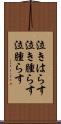 泣きはらす
泣き腫らす
泣腫らす